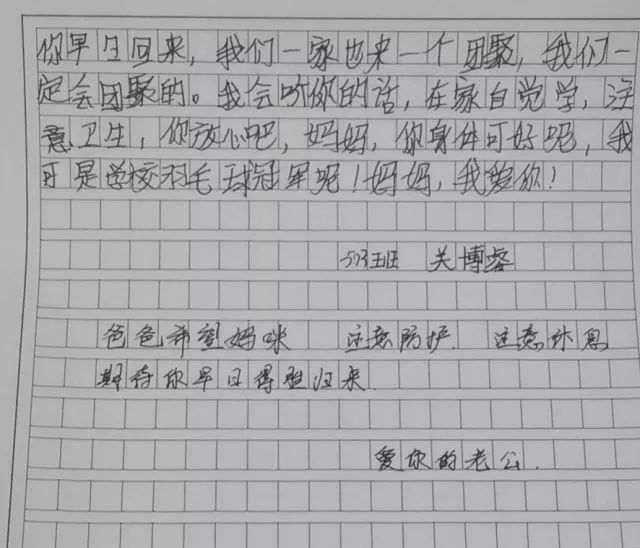 你早日回来，我们一家也来一个团聚，我们一
定会团聚的。我会听你的话，在家自觉学，注
意卫生，你放心吧，妈妈，你身体可好呢，我
可是学校羽毛球冠军呢！妈妈，我爱你！
503班 关博睿
爸爸希望妈咪 注意防护 注意休息
期待你早日得胜归来.
爱你的老公.